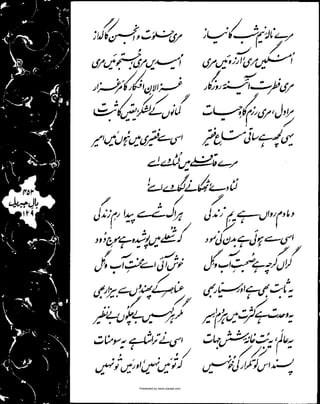 مرے نالۂ نیم شب کا نیاز
مری خلوت و انجمن کا گداز
امنگیں مری، آرزوئیں مری
امیدیں مری، جستجوئیں مری
مری فطرت آئینۂ روزگار
غزالانِ افکار کا مرغزار
مرا دل، مری رزم گاہِ حیات
گمانوں کے لشکر، یقیں کا ثبات
یہی کچھ ہے ساقی متاعِ فقیر
اسی سے فقیری میں ہوں میں امیر
مرے قافلے میں لٹا دے اسے
لٹا دے، ٹھکانے لگا دے اسے
دمادم رواں ہے یمِ زندگی
ہر اک شے سے پیدا رمِ زندگی
اسی سے ہوئی ہے بدن کی نمود
کہ شعلے میں پوشیدہ ہے موجِ دود
گراں گرچہ ہے صحبتِ آب و گل
خوش آئی اسے محنتِ آب و گل
یہ ثابت بھی ہے اور سیار بھی
عناصر کے پھندوں سے بیزار بھی
یہ وحدت ہے کثرت میں ہر دم اسیر
مگر ہر کہیں بے چگوں، بے نظیر
یہ عالم، یہ بت خانۂ شش جہات
اسی نے تراشا ہے یہ سومنات
پسند اس کو تکرار کی خو نہیں
کہ تو میں نہیں، اور میں تو نہیں
۴۵۳
بالِ جبریل
۱۲۹